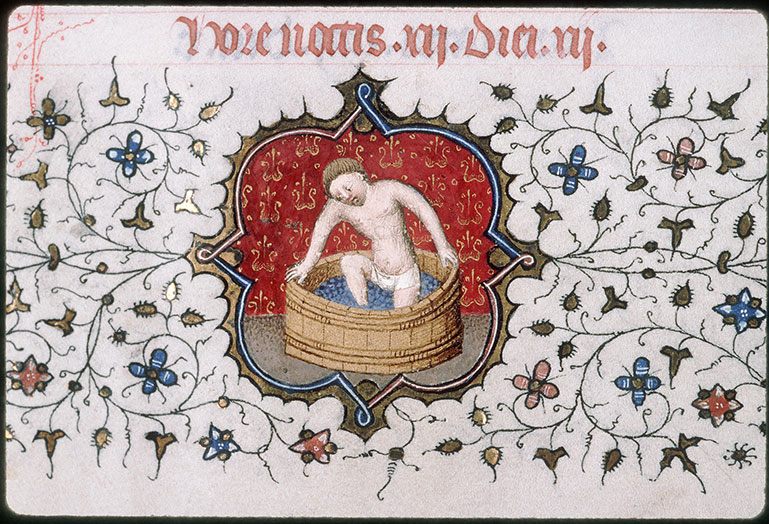 Hore noctis .xij. Diei .xij.